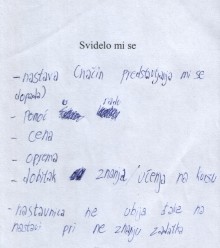 Svidelo mi se
- nastava (način predstavljanja mi se
dopada)
- pomoć
- cena
- oprema
- dobitak znanja učenja na kursu
- nastavnica ne ubija šale na
nastavi pri ne znanju zadatka